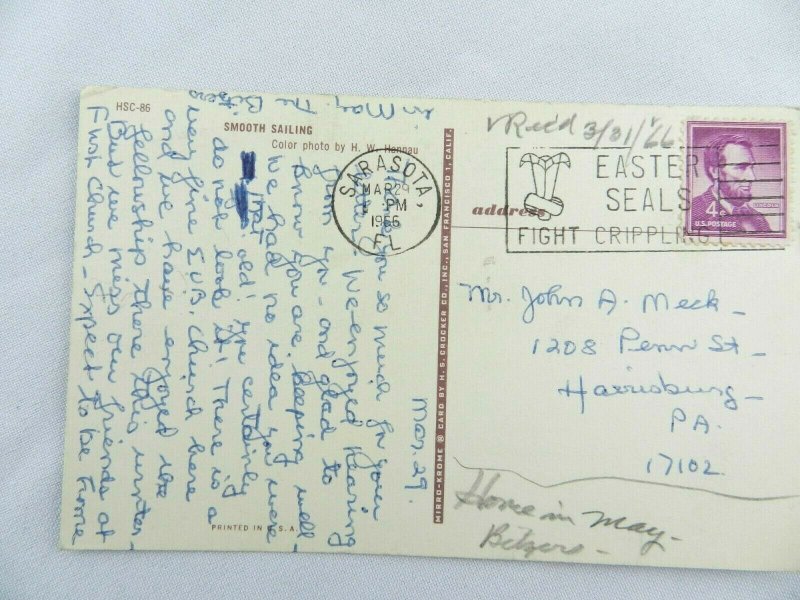 HSC-86
SMOOTH SAILING
Color photo by H. W. Hannau
Mar. 29.
you so much for your
letter. We enjoyed hearing
from you - and glad to
know you are keeping well -
We had no idea you were
that old! You certainly
do not look it! There is a
very fine E.U.B. Church here
and we have enjoyed the
fellowship there this winter -
But we miss our friends at
First Church - Expect to be home
in May. The
PRINTED IN U.S.A.
MIRRO-KROME ® CARD BY H. S. CROCKER CO., INC., SAN FRANCISCO 1, CALIF.
Rec'd 3/31/66
SARASOTA,
MAR 29
PM
1966
FL
EASTER
SEALS
FIGHT CRIPPLING
LINCOLN
4¢
U.S. POSTAGE
address
Mr. John A. Meck -
1208 Penn St -
Harrisburg -
PA.
17102
Home in May -
Bitzers -